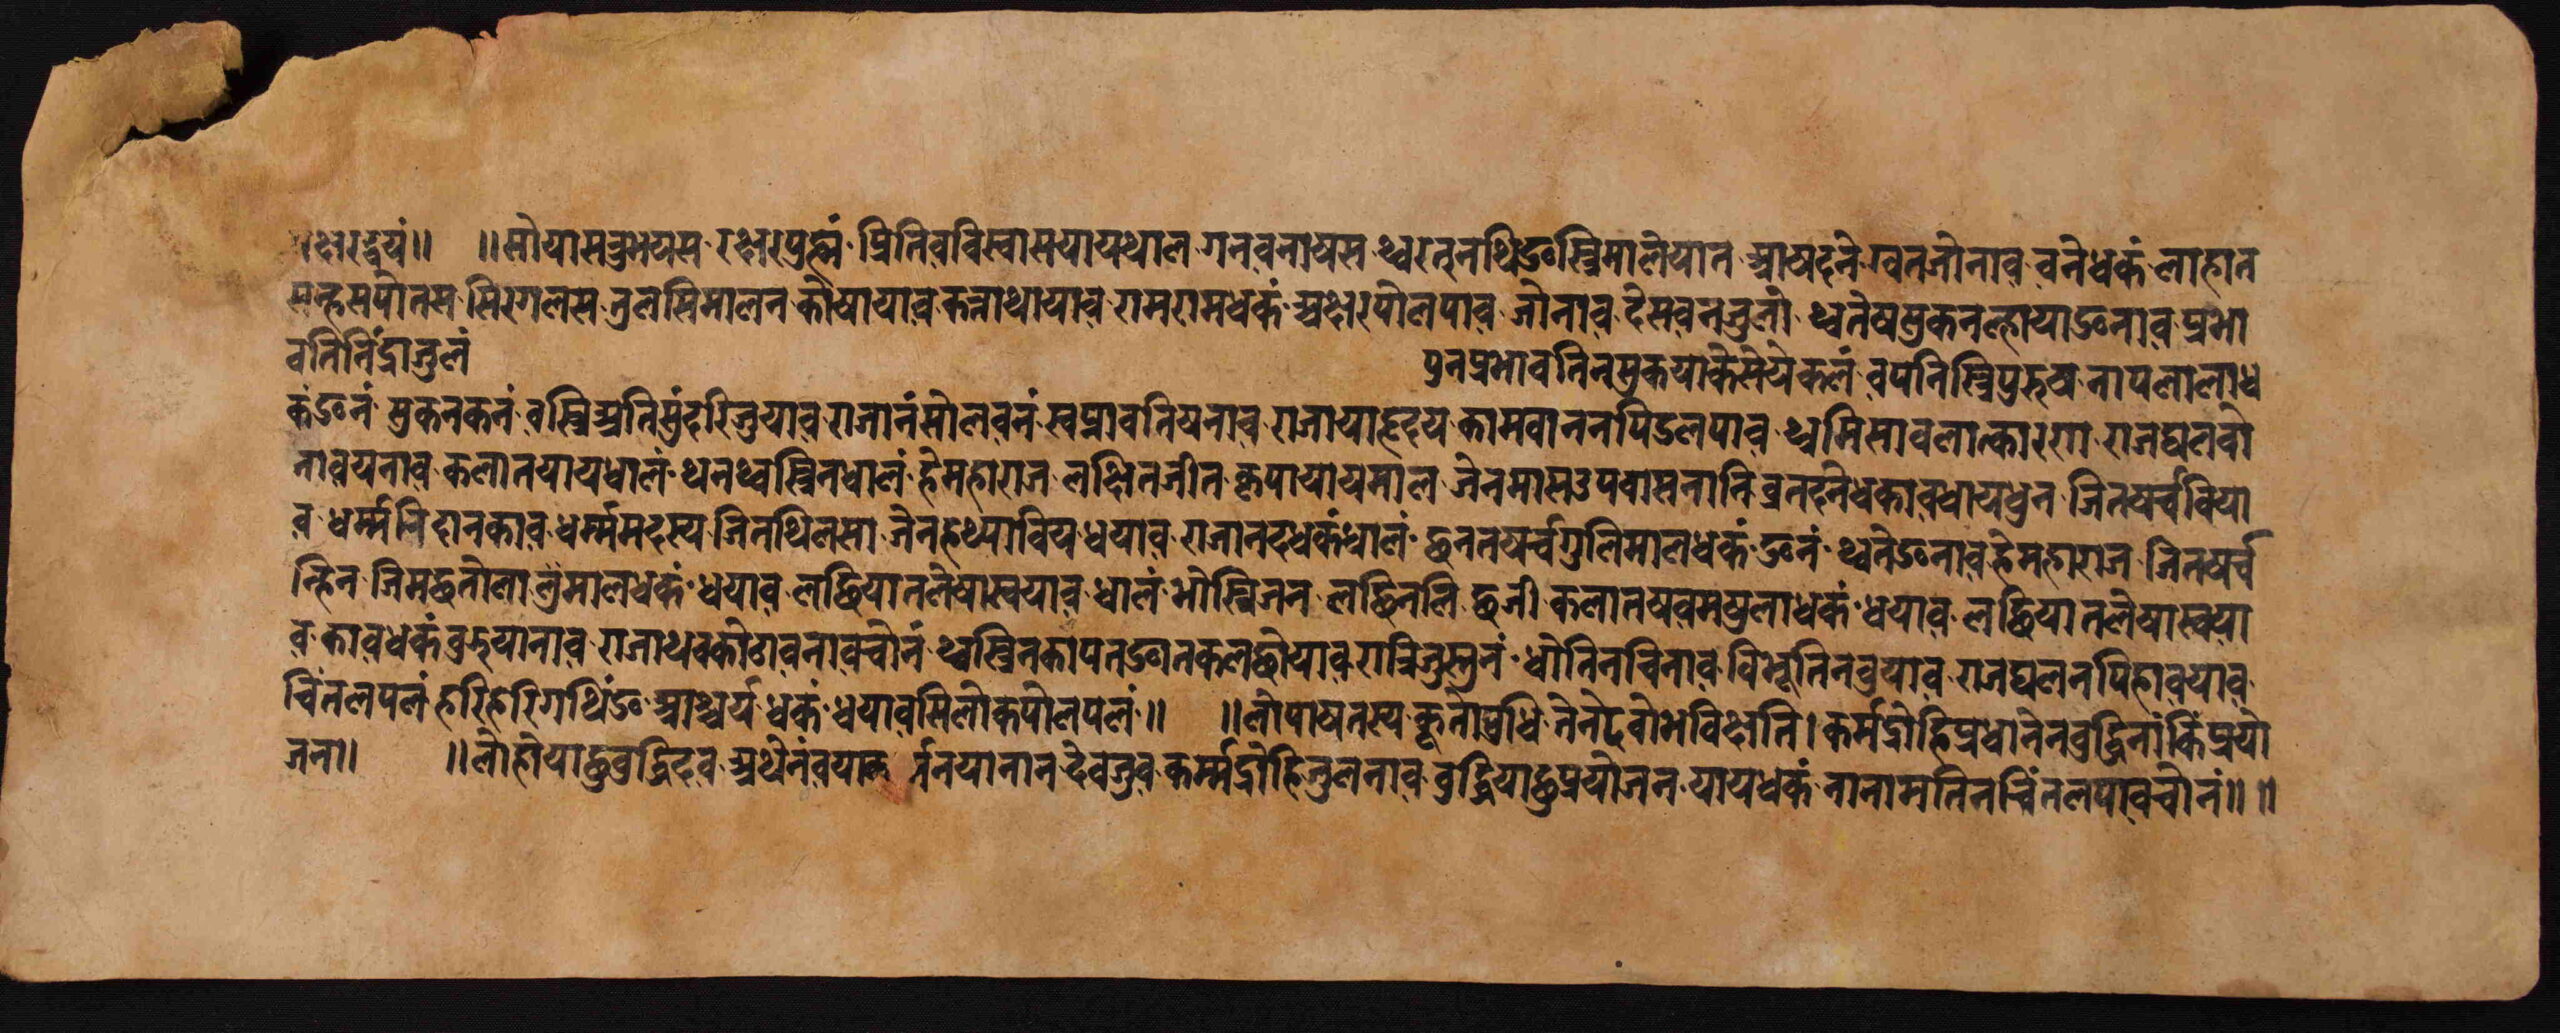 क्षरद्वयं॥ ॥सोयासवुभयस रक्षरपुह्मं प्रितिवविस्वासयायथाल गनवनाषस थ्वरत्नथिङस्त्रिमालेयात आषदने ग्वतजोनाव वनेधकं लाहात
सन्हसपोतस सिरगलस तुलसिमालन कोषायाव कन्नाथायाव रामरामधकं अक्षरपोलपाव जोनाव देसवनजुलों थ्वतेषसुकनल्हायाङनाव प्रभा
वतिनिंद्राजुलं पुनप्रभावतिनसुकयाकेसेयेकलं वपनिस्त्रिपुरुष नापलालाध
कंङनं सुकनकनं वस्त्रिअतिसुंदरिजुयाव राजानंसोलवनं स्वप्नावतिषनाव राजायाहृदय कामवाननपिडलपाव थ्वमिसावलात्कारगा राजघलवो
नावयनाव कलातयायधालं थनथ्वस्त्रिनधालं हेमहाराज लक्षितजीत कृपायायमाल जेनमासउपवासनानि व्रतदनेधकावधायधुन जितषर्चविया
व धर्म्मनिदानकाव धर्म्ममदस्य जिनथिलसा जेनहथ्याविय धयाव राजानदधकंधालं छनतषर्चगुलिमालधकं ङनं थ्वतेङनाव हेमहाराज जितषर्च
न्हिन जिमछतोला लुमालधकं धयाव लछियातलेषास्वयाव धालं भोस्त्रिजन लछिनलि छजी कलातषवमषुलाधकं धयाव लछियातलेषास्वया
व कावधकं वुझयानाव राजाथवकोठावनावचोनं थ्वस्त्रिनकापनङानकलछोयाव रात्रिजुस्तुनं धोतिनचिनाव विभूतिनवुयाव राजघलनपिहावयाव
चिंतलपलं हरिहरिगथिंङ आश्चर्य धकं धयावसिलोकपोलपलं॥ ॥लोपाषतस्य कूतोवुधि नेनेदवोभविक्षति। कर्मद्रोहिप्रधानेनवुद्धिनां किंप्रयो
जन॥ ॥लोहोयाछुवुद्धिदव अथेनंवयाक र्नयानान देवजुव कर्म्मद्रोहिजुलनाव वुद्धियाछुप्रयोजन यायधकं नानामतिनचिंतलपावचोनं॥ ॥